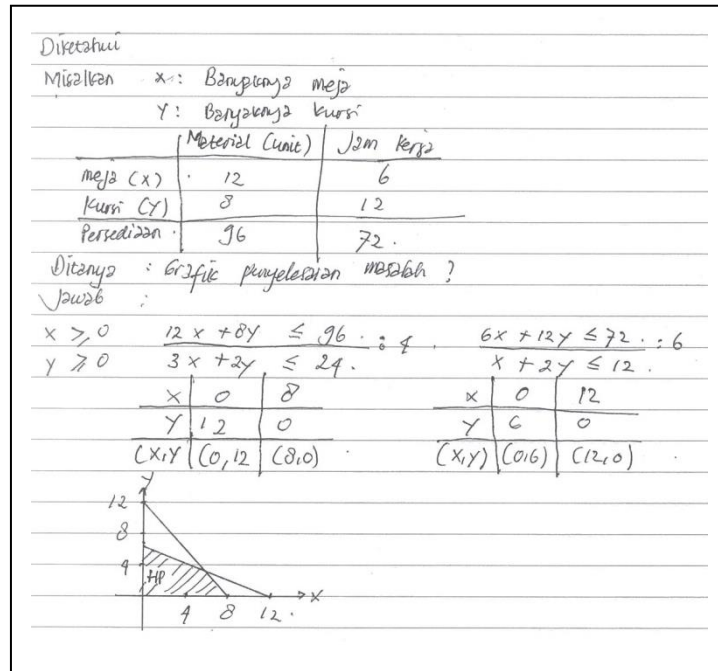 Diketahui
Misalkan x : Banyaknya meja
Y : Banyaknya kursi
Material (unit) Jam Kerja
meja (x) 12 6
Kursi (Y) 8 12
Persediaan 96 72.
Ditanya : Grafik penyelesaian masalah ?
Jawab :
x ≥ 0 12x + 8y ≤ 96. : 4 . 6x + 12y ≤ 72. : 6
y ≥ 0 3x + 2y ≤ 24. x + 2y ≤ 12.
x 0 8 x 0 12
y 12 0 y 6 0
(x,y (0,12 (8,0) (x,y) (0,6) (12,0) .
y
12
8
4 HP
x
4 8 12.